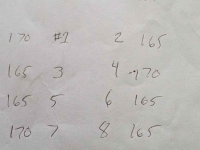 170 #1 2 165
165 3 4 170
165 5 6 165
170 7 8 165